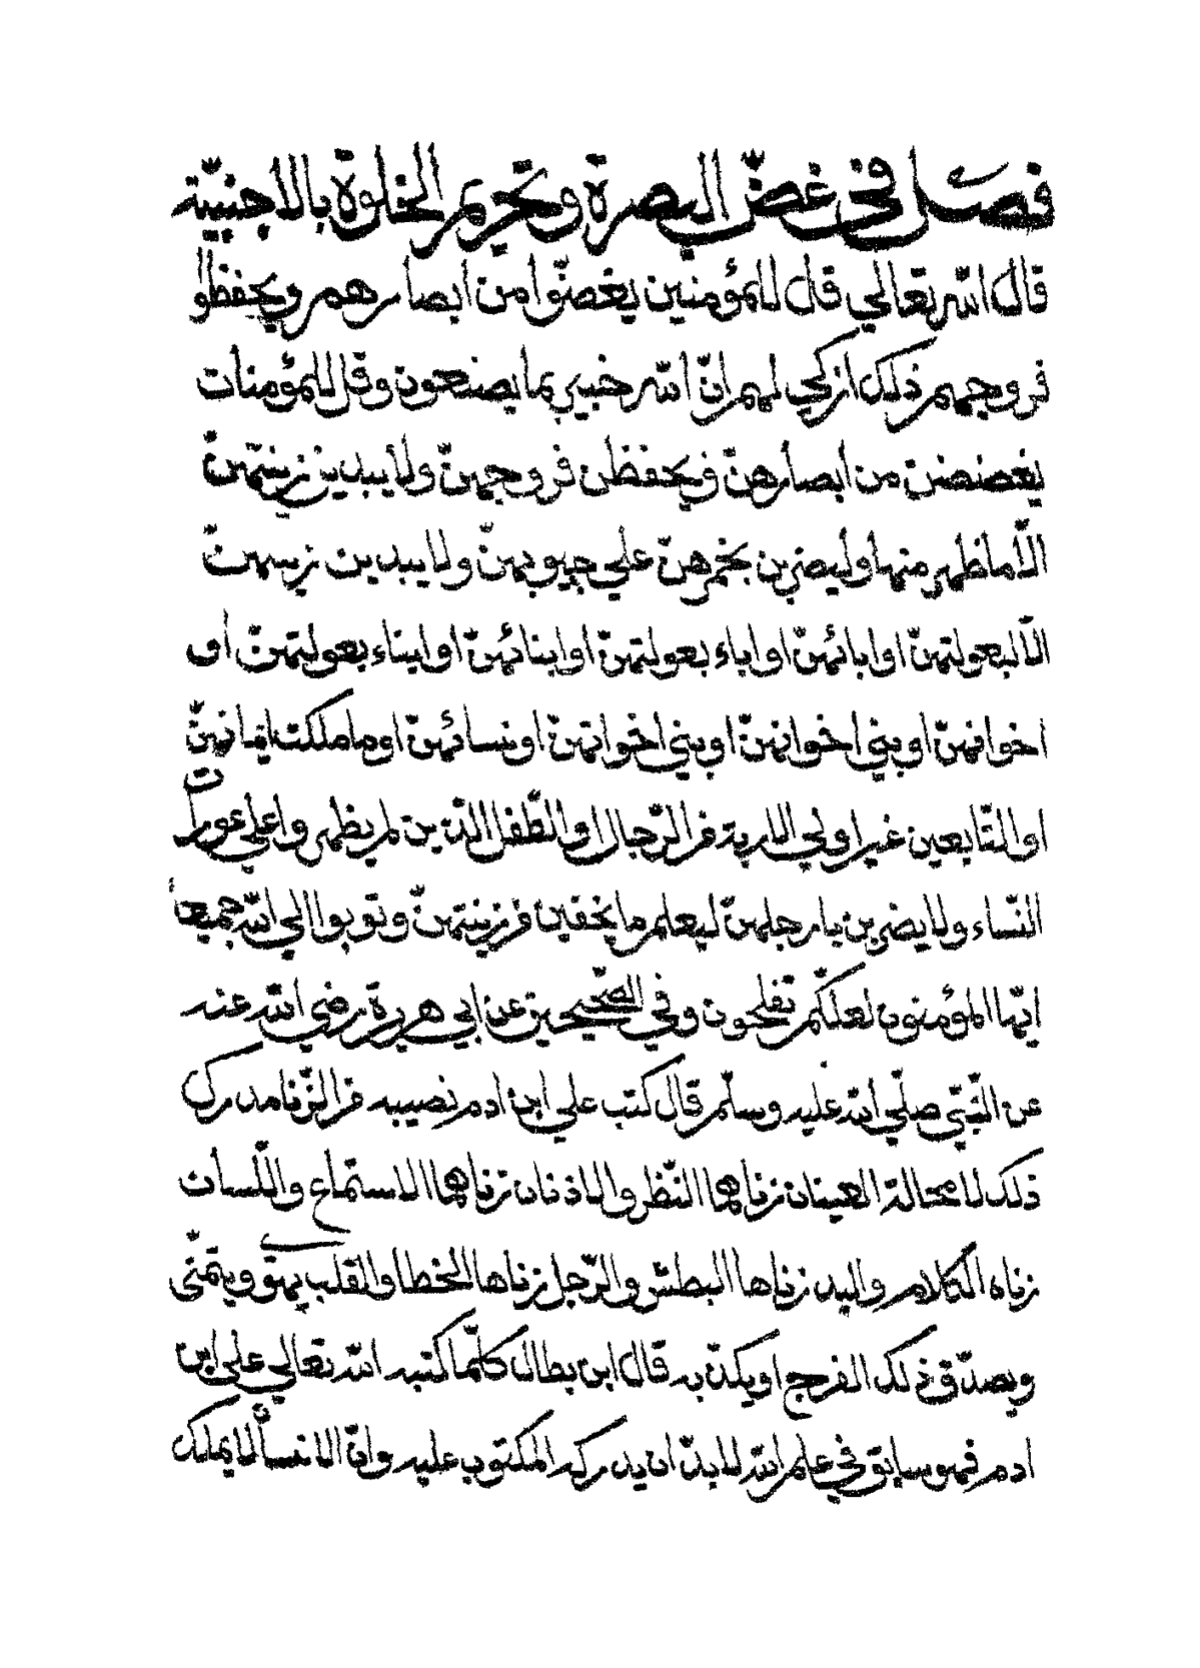 فصل في غضّ البصرة وتحريم الخلوة بالاجنبيّة
قال الله تعالي قل للمؤمنين يغضّوا من ابصارهم ويحفظوا
فروجهم ذلك ازكي لهم انّ الله خبير بما يصنعون وقل للمؤمنات
يغضضن من ابصارهنّ ويحفظن فروجهنّ ولا يبدين زينتهنّ
الّا ما ظهر منها وليضربن بخمرهنّ علي جيوبهنّ ولا يبدين زينتهنّ
الّا لبعولتهنّ او ابائهنّ او اباء بعولتهنّ او ابنائهنّ او ابناء بعولتهنّ او
اخوانهنّ او بني اخوانهنّ او بني اخواتهنّ او نسائهنّ او ما ملكت ايمانهنّ
او التّابعين غير اولي الاربة من الرّجال او الطّفل الّذين لم يظهروا علي عورات
النّساء ولا يضربن بارجلهنّ ليعلم ما يخفين من زينتهنّ وتوبوا الي الله جميعا
ايّها المؤمنون لعلّكم تفلحون وفي الصّحيحين عن ابي هريرة رضي الله عنه
عن النّبيّ صلّي الله عليه وسلّم قال كتب علي ابن ادم نصيبه من الزّنا مدرك
ذلك لا محالة العينان زناهما النّظر والاذنان زناهما الاستماع واللّسان
زناه الكلام واليد زناها البطش والرّجل زناها الخطا والقلب يهوي ويتمنّي
ويصدّق ذلك الفرج او يكذّ به قال ابن بطال كلّما كتبه الله تعالي علي ابن
ادم فهو سابق في علم الله لا بدّ ان يدركه المكتوب عليه وانّ الانسان لا يملك